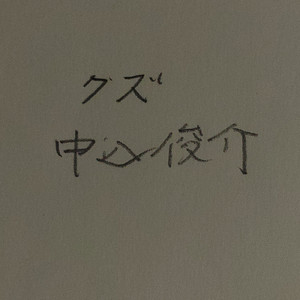 クズ
申込俊介